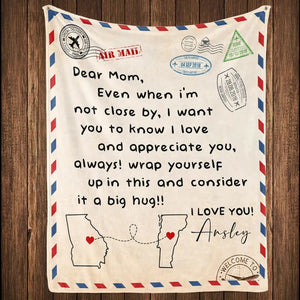 AIR MAIL
Dear Mom,
Even when i'm
not close by, I want
you to know I love
and appreciate you,
always! wrap yourself
up in this and consider
it a big hug!!
I LOVE YOU!
Ansley
WELCOME TO